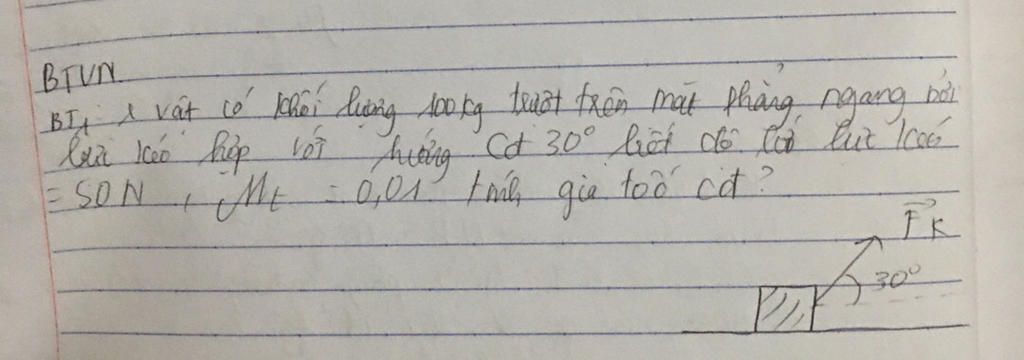 BTVN
BT1 1 vật có khối lượng 100kg trượt trên mặt phẳng ngang bởi
lực kéo hợp với hướng Cđ 30° biết độ lớn lực kéo
= 50N, Mt = 0,01 tính gia tốc cđ?
F K
30°